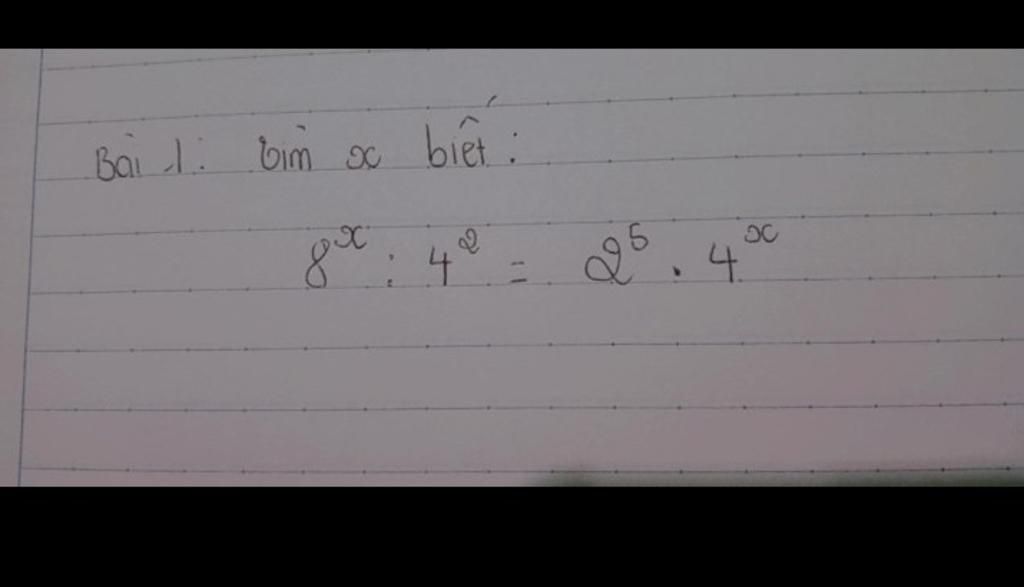 Bài 1: tìm x biết:
8^x : 4^2 = 2^5 . 4^x